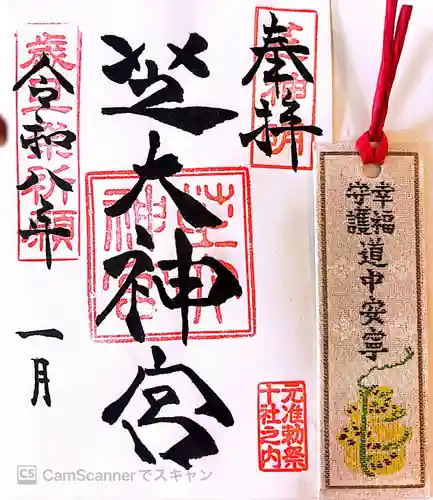 奉拝
芝大神宮
令和八年
一月
元准勅祭
十社之内
幸福
守護
道中安寧
CS CamScannerでスキャン